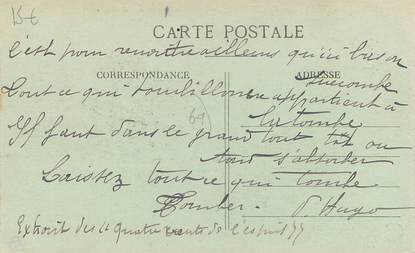 15€
CARTE POSTALE
c'est pour renaître ailleurs qu'ici bas on
CORRESPONDANCE
ADRESSE
succombe
Tout ce qui tourbillonne appartient à
la tombe
69
Il faut dans le grand tout tôt ou
tard s'absorber
Laissez tout ce qui tombe
Tomber.
V. Hugo
Extrait des "quatre vents de l'esprit"